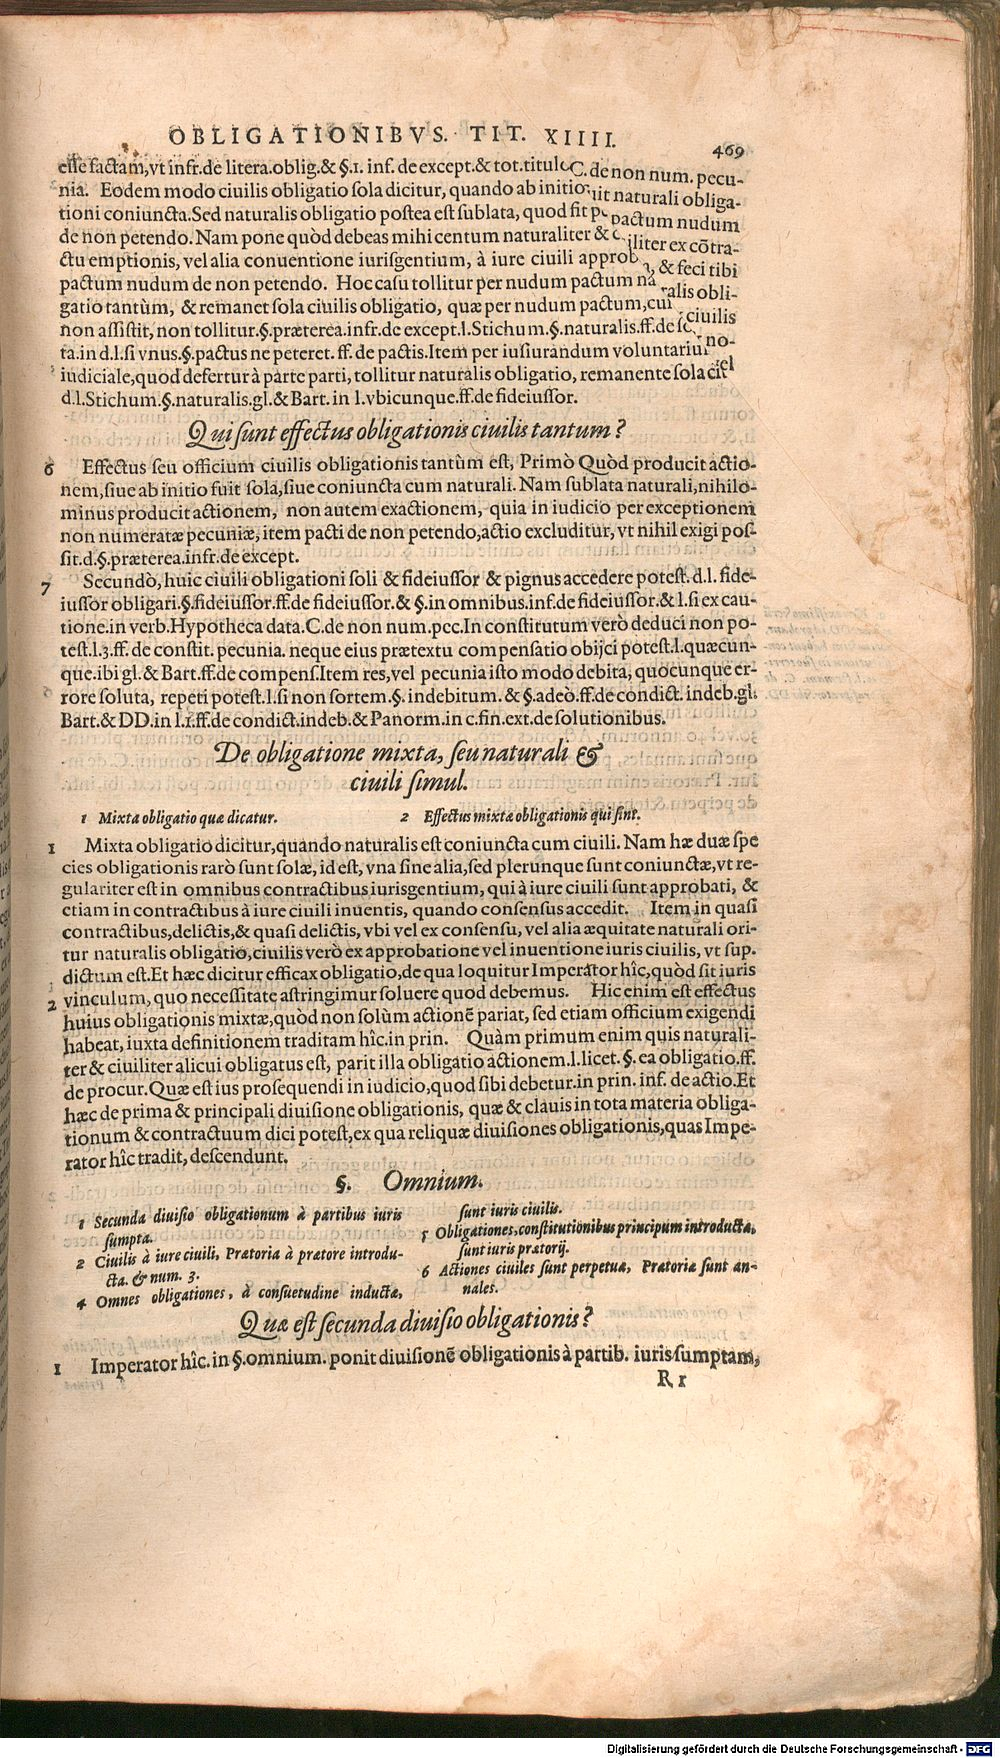 OBLIGATIONIBVS. TIT. XIIII. 469
esse factam, vt infr. de litera. oblig. & §.1. inf. de except. & tot. titulo C. de non num. pecu-
nia. Eodem modo ciuilis obligatio sola dicitur, quando ab initio uit naturali obliga-
tioni coniuncta. Sed naturalis obligatio postea est sublata, quod fit p pactum nudum
de non petendo. Nam pone quòd debeas mihi centum naturaliter & c iliter ex cōtra-
ctu emptionis, vel alia conuentione iurisgentium, à iure ciuili approb , & feci tibi
pactum nudum de non petendo. Hoc casu tollitur per nudum pactum na ralis obli-
gatio tantùm, & remanet sola ciuilis obligatio, quæ per nudum pactum, cui ciuilis
non assistit, non tollitur. §. præterea. infr. de except. l. Stichum. §. naturalis. ff. de sc no-
ta. in d. l. si vnus. §. pactus ne peteret. ff. de pactis. Item per iusiurandum voluntariū el
iudiciale, quod defertur à parte parti, tollitur naturalis obligatio, remanente sola ci
d. l. Stichum. §. naturalis. gl. & Bart. in l. vbicunque. ff. de fideiussor.
Qui sunt effectus obligationis ciuilis tantum?
6 Effectus seu officium ciuilis obligationis tantùm est, Primò Quòd producit actio-
nem, siue ab initio fuit sola, siue coniuncta cum naturali. Nam sublata naturali, nihilo-
minus producit actionem, non autem exactionem, quia in iudicio per exceptionem
non numeratæ pecuniæ, item pacti de non petendo, actio excluditur, vt nihil exigi pos-
sit. d. §. præterea. infr. de except.
7 Secundò, huic ciuili obligationi soli & fideiussor & pignus accedere potest. d. l. fide-
iussor obligari. §. fideiussor. ff. de fideiussor. & §. in omnibus. inf. de fideiussor. & l. si ex cau-
tione. in verb. Hypotheca data. C. de non num. pec. In constitutum verò deduci non po-
test. l. 3. ff. de constit. pecunia. neque eius prætextu compensatio obijci potest. l. quæcun-
que. ibi gl. & Bart. ff. de compens. Item res, vel pecunia isto modo debita, quocunque er-
rore soluta, repeti potest. l. si non sortem. §. indebitum. & §. adeò. ff. de condict. indeb. gl.
Bart. & DD. in l. 1. ff. de condict. indeb. & Panorm. in c. fin. ext. de solutionibus.
De obligatione mixta, seu naturali &
ciuili simul.
1 Mixta obligatio quæ dicatur. 2 Effectus mixtæ obligationis qui sint.
1 Mixta obligatio dicitur, quando naturalis est coniuncta cum ciuili. Nam hæ duæ spe
cies obligationis rarò sunt solæ, id est, vna sine alia, sed plerunque sunt coniunctæ, vt re-
gulariter est in omnibus contractibus iurisgentium, qui à iure ciuili sunt approbati, &
etiam in contractibus à iure ciuili inuentis, quando consensus accedit. Item in quasi
contractibus, delictis, & quasi delictis, vbi vel ex consensu, vel alia æquitate naturali ori-
tur naturalis obligatio, ciuilis verò ex approbatione vel inuentione iuris ciuilis, vt sup.
dictum est. Et hæc dicitur efficax obligatio, de qua loquitur Imperator hîc, quòd sit iuris
2 vinculum, quo necessitate astringimur soluere quod debemus. Hic enim est effectus
huius obligationis mixtæ, quòd non solùm actionē pariat, sed etiam officium exigendi
habeat, iuxta definitionem traditam hîc. in prin. Quàm primum enim quis naturali-
ter & ciuiliter alicui obligatus est, parit illa obligatio actionem. l. licet. §. ea obligatio. ff.
de procur. Quæ est ius prosequendi in iudicio, quod sibi debetur. in prin. inf. de actio. Et
hæc de prima & principali diuisione obligationis, quæ & clauis in tota materia obliga-
tionum & contractuum dici potest, ex qua reliquæ diuisiones obligationis, quas Impe-
rator hîc tradit, descendunt.
§. Omnium.
1 Secunda diuisio obligationum à partibus iuris
sumpta.
2 Ciuilis à iure ciuili, Prætoria à prætore introdu-
cta. & num. 3.
4 Omnes obligationes, à consuetudine inductæ,
sunt iuris ciuilis.
5 Obligationes, constitutionibus principum introductæ,
sunt iuris prætorij.
6 Actiones ciuiles sunt perpetuæ, Prætoriæ sunt an-
nales.
Quæ est secunda diuisio obligationis?
1 Imperator hîc. in §. omnium. ponit diuisionē obligationis à partib. iuris sumptam,
R r
Digitalisierung gefördert durch die Deutsche Forschungsgemeinschaft - DFG